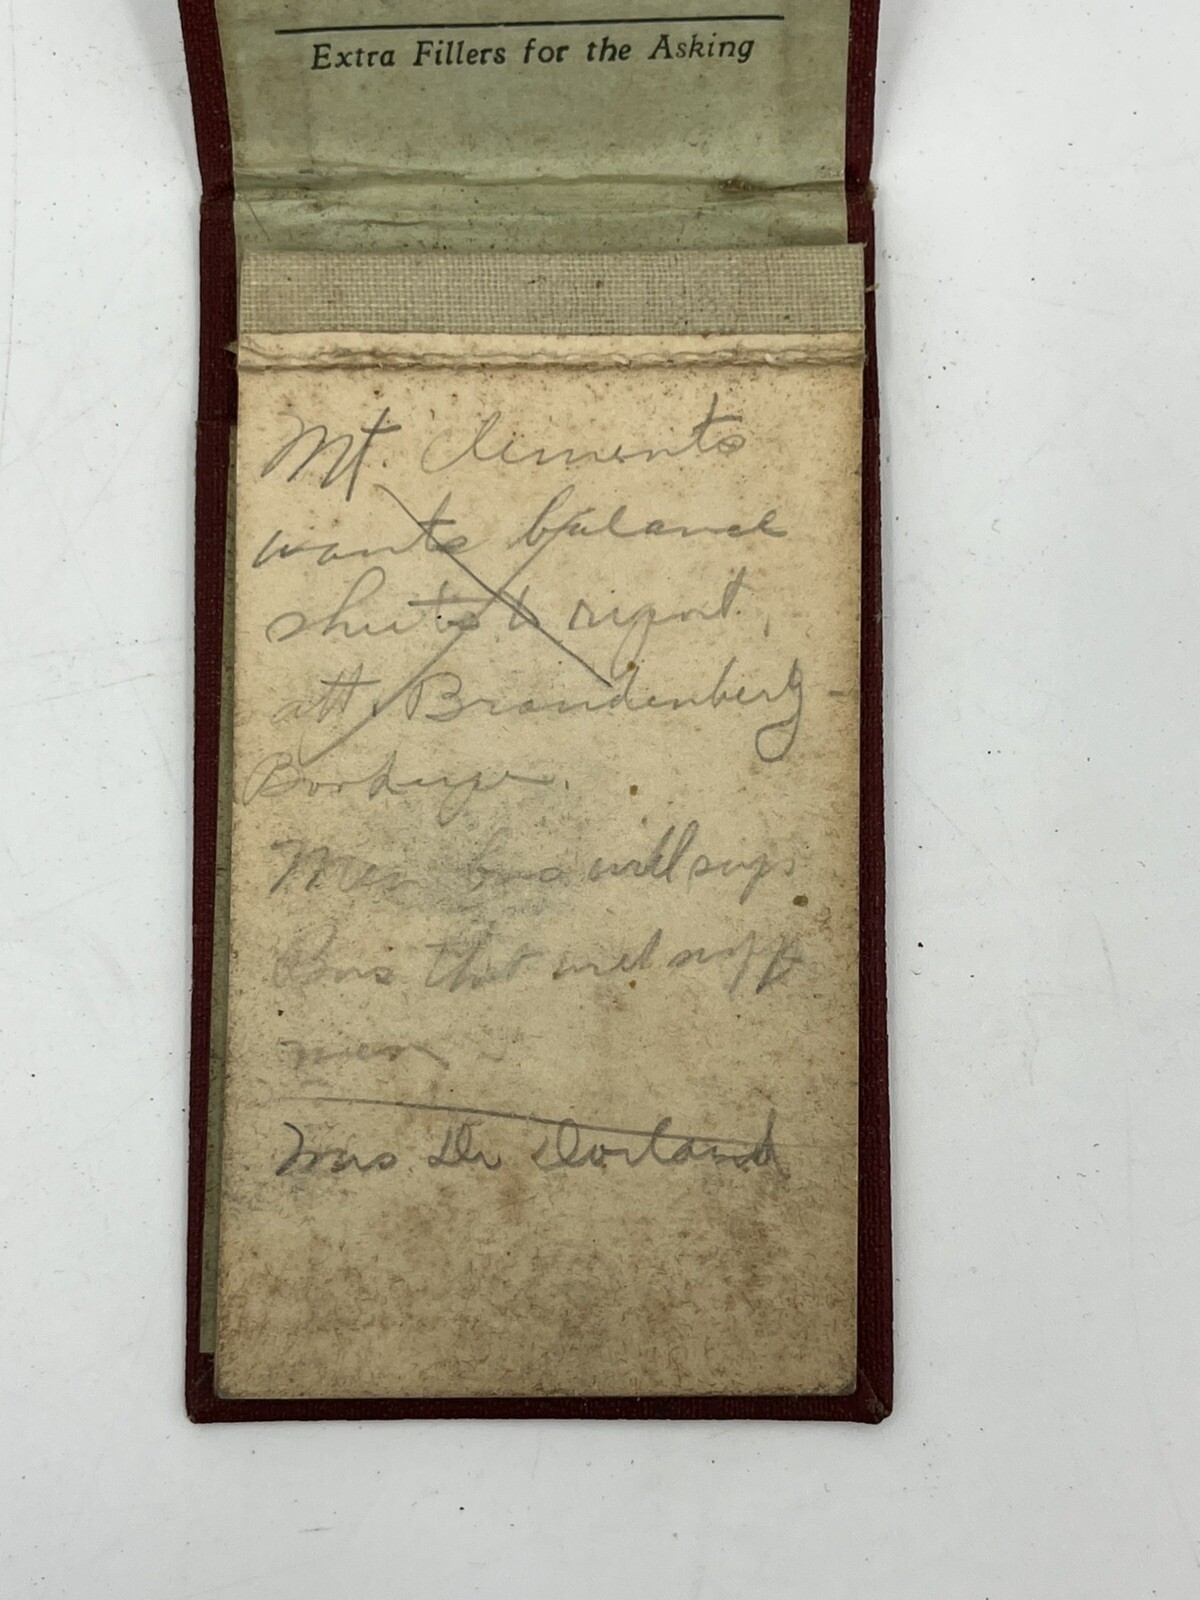 Extra Fillers for the Asking
Mt. Clements
wants balance
sheets & report,
att. Brandenberg -
Men bus will supp.
Bus that will supp
men
Mrs Dr Dorland